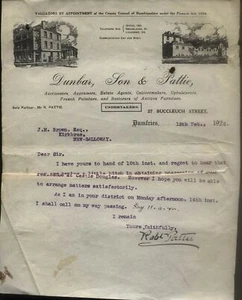 VALUATORS BY APPOINTMENT of the County Council of Dumfriesshire under the Finance Act, 1910.
Dunbar, Son & Pattie,
Auctioneers, Appraisers, Estate Agents, Cabinetmakers, Upholsterers,
French Polishers, and Restorers of Antique Furniture.
UNDERTAKERS.
Sole Partner: Mr R. PATTIE.
27 BUCCLEUCH STREET,
Dumfries, 12th Feb.,
J.M. Brown, Esq.,
Kirkbrae,
NEW-GALLOWAY.
Dear Sir.
I have yours to hand of 10th inst. and regret to hear that
Douglas. However I hope you will be able
to arrange matters satisfactorily.
As I am in your district on Monday afternoon, 16th inst.
I shall call on my way passing.
I remain
Yours faithfully,
Robt Pattie